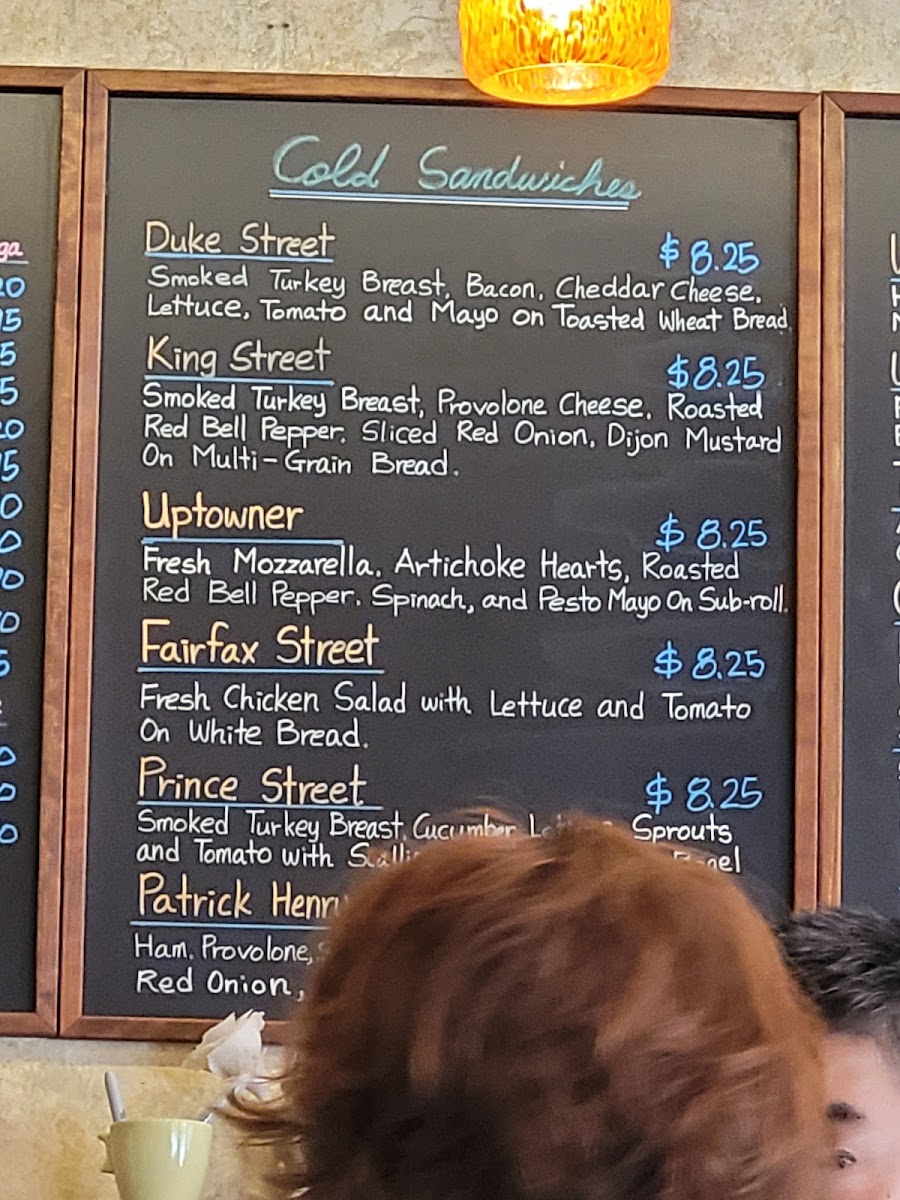 Cold Sandwiches
Duke Street $8.25
Smoked Turkey Breast, Bacon, Cheddar Cheese,
Lettuce, Tomato and Mayo on Toasted Wheat Bread.
King Street $8.25
Smoked Turkey Breast, Provolone Cheese, Roasted
Red Bell Pepper, Sliced Red Onion, Dijon Mustard
On Multi-Grain Bread.
Uptowner $8.25
Fresh Mozzarella, Artichoke Hearts, Roasted
Red Bell Pepper, Spinach, and Pesto Mayo On Sub-roll.
Fairfax Street $8.25
Fresh Chicken Salad with Lettuce and Tomato
On White Bread.
Prince Street $8.25
Smoked Turkey Breast, Cucumber Sprouts
and Tomato with
Patrick Henry
Ham, Provolone,
Red Onion,